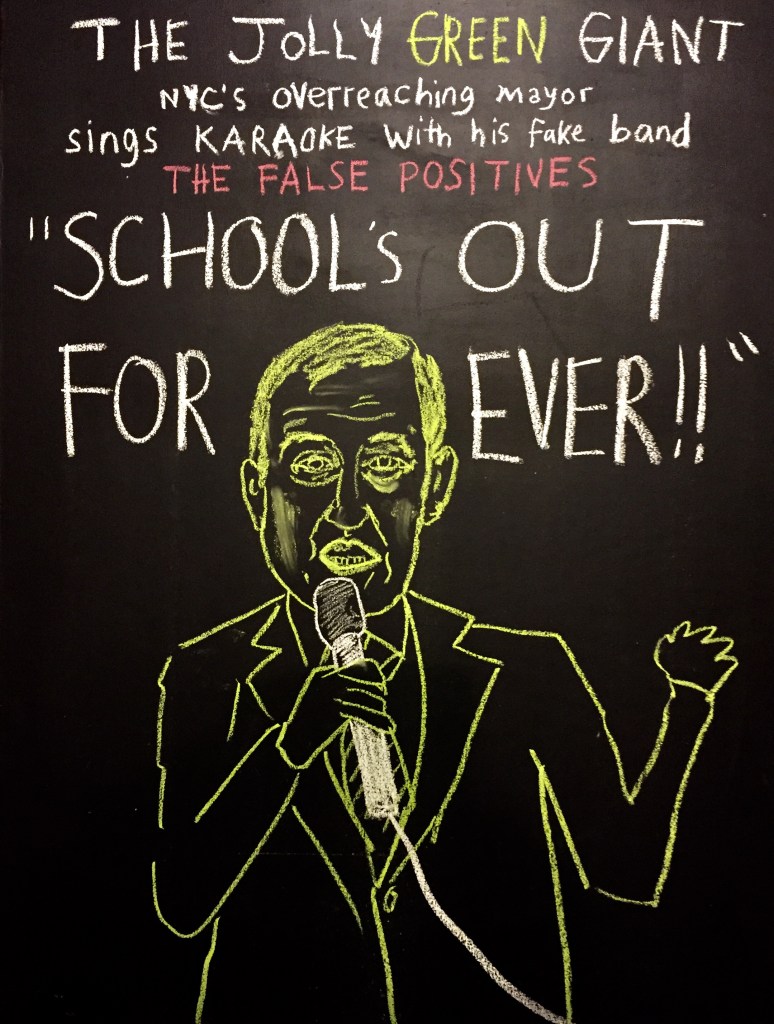 THE JOLLY GREEN GIANT
NYC's overreaching mayor
sings KARAOKE with his fake band
THE FALSE POSITIVES
"SCHOOL's OUT
FOR EVER!!"